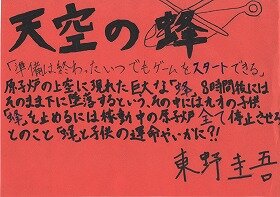 天空の蜂
「準備は終わった。いつでもゲームをスタートできる」
原子炉の上空に現れた巨大な「蜂」8時間後には
そのまま下に墜落するという、その中には九才の子供
「蜂」を止めるには稼動中の原子炉全て停止させろ
とのこと「蜂」と子供の運命やいかに?!
東野圭吾